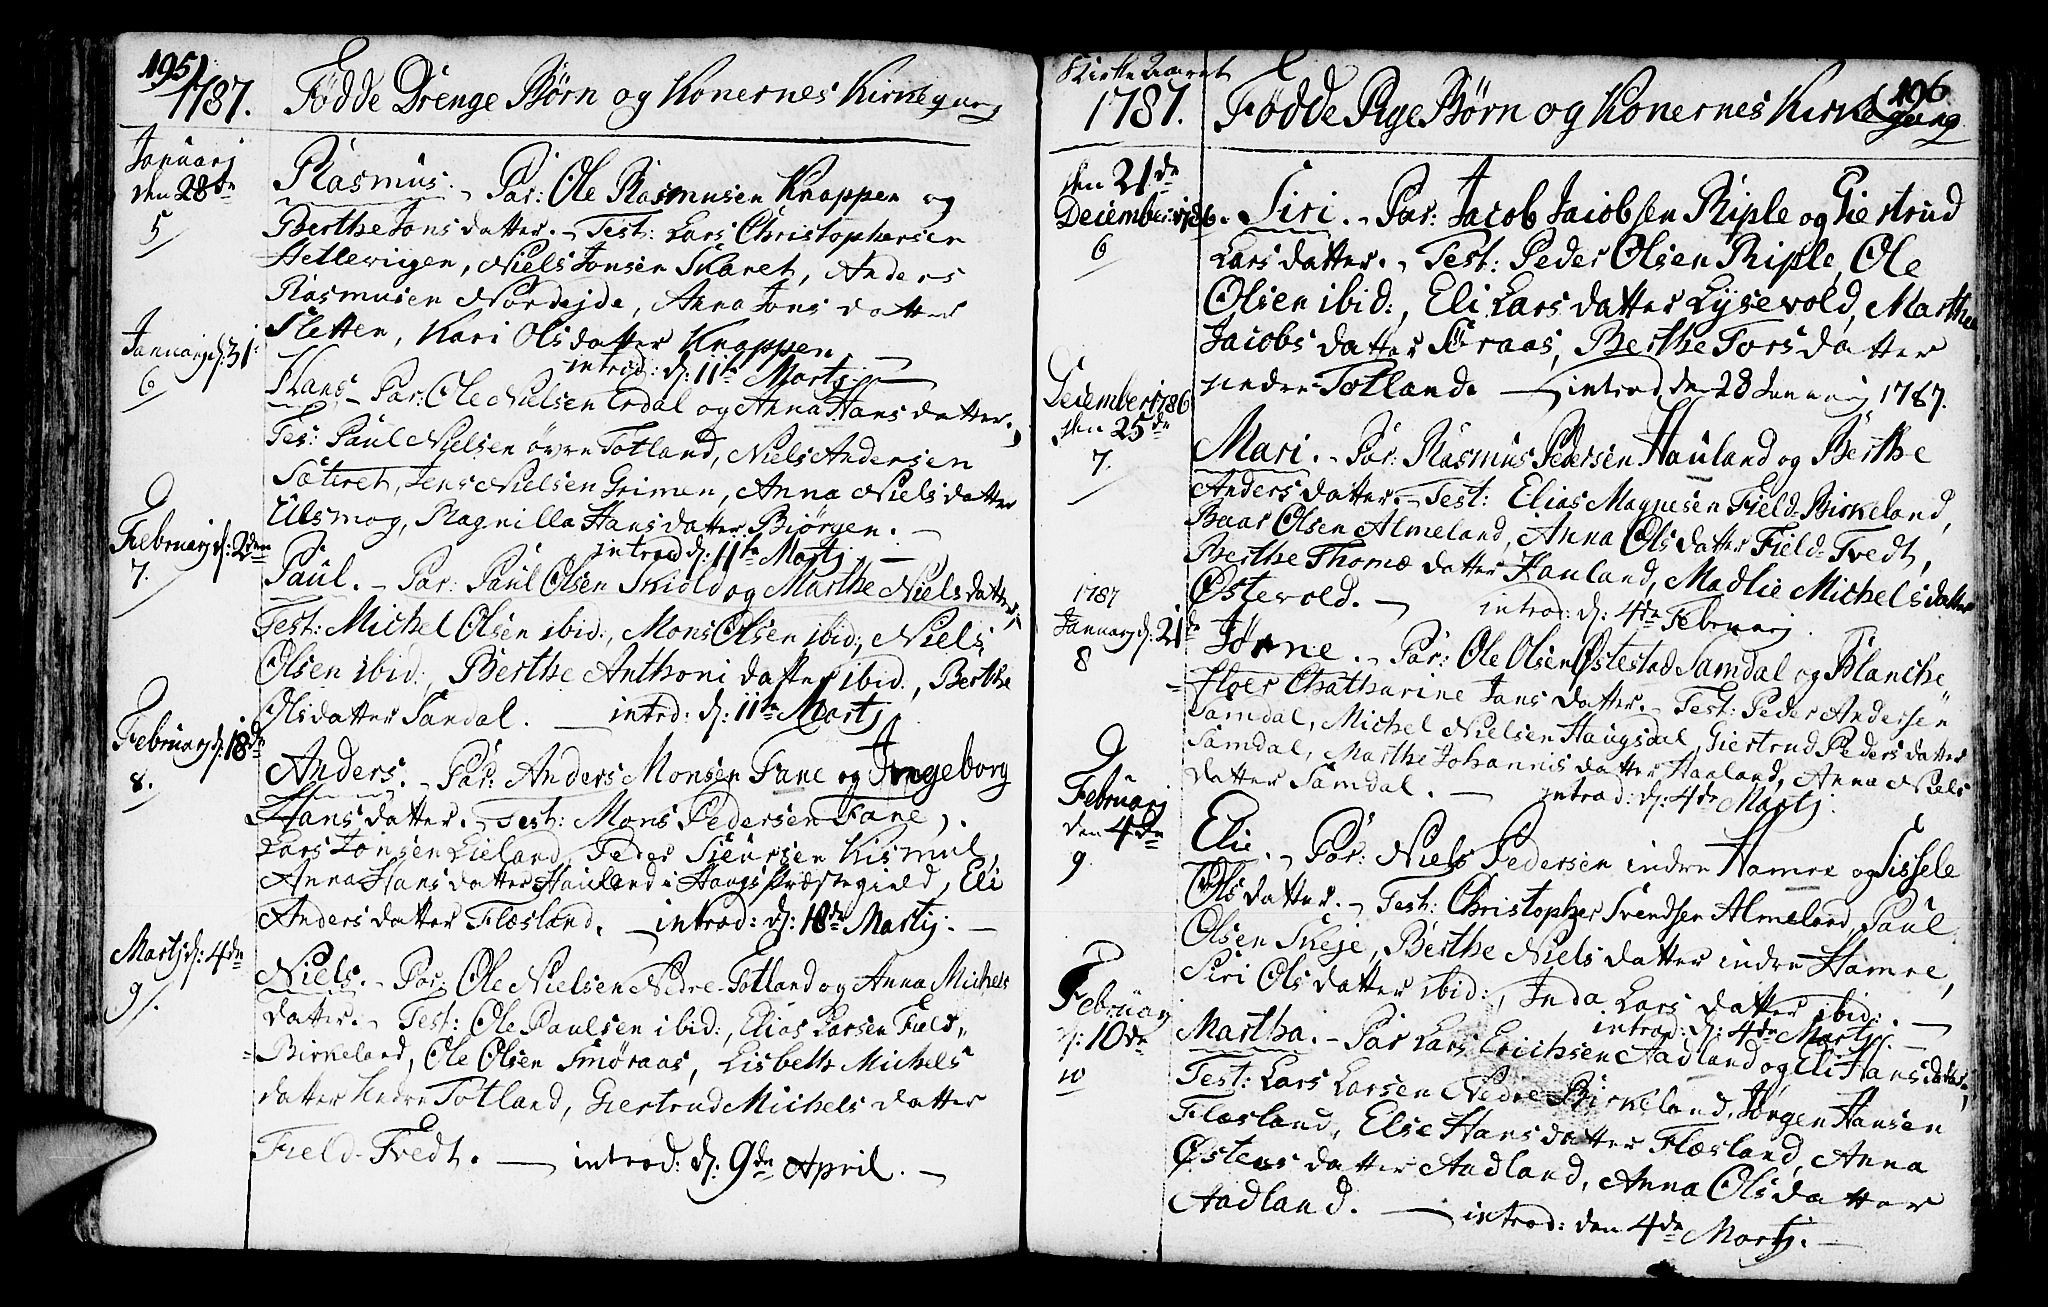 195
1787. Födde Drenge Börn og Konernes Kirkegang
Januarj
den 28de
5
Rasmus. Par: Ole Rasmusen Knappen og
Berthe Jonsdatter. Test: Lars Christophersen
Hetlevigen, Niels Jonsen Skaret, Anders
Rasmusen Nordejde, Anna Jons datter
Sletten, Kari Olsdatter Knappen
introd: d: 11te Martj
Januarj d: 31
6
Hans. Par: Ole Nielsen Erdal og Anna Hans datter.
Tes: Paul Nielsen övre Totland, Niels Andersen
Sætret, Jens Nielsen Grimen, Anna Niels datter
Ulsmog, Ragnilla Hans datter Biörgen.
introd d: 11te Martj
Februarj d: 2den
7.
Paul. Par: Paul Olsen Skiold og Marthe Niels datter,
Test: Michel Olsen ibid:, Mons Olsen ibid:, Niels
Olsen ibid:, Berthe Anthoni datter ibid:, Berthe
Olsdatter Sandal. introd: d: 11te Martj
Februarj d: 18de
8.
Anders. Par: Anders Monsen Fane og Ingeborg
Hans datter. Test: Mons Pedersen Fane,
Lars Jonsen Lieland, Peder Siursen Kismul,
Anna Hans datter Hauland i Haugs Præstegield, Eli
Anders datter Flæsland. introd: d: 18de Martij.
Martj d: 4de
9.
Niels. Par: Ole Nielsen Nedre-Totland og Anna Michels
datter. Test: Ole Paulsen ibid:, Elias Larsen Field-
Birkeland, Ole Olsen Smöraas, Lisbeth Michels
datter Indre Totland, Giertrud Michels datter
Field-Tvedt. introd: d: 9de April.
196.
Kirke Aaret
1787. Födde Pige Börn og Konernes Kirkegang
den 21de
December 1786.
6
Siri. Par: Jacob Jacobsen Riple og Giertrud
Lars datter. Test: Peder Olsen Riple, Ole
Olsen ibid:, Eli Lars datter Lysevold, Marthe
Jacobs datter Straas, Berthe Tors datter
indre Totland. introd den 28 Januarij 1787.
December 1786
den 25de
7.
Mari. Par: Rasmus Pedersen Hauland og Berthe
Anders datter. Test: Elias Magnesen Field-Birkeland,
Baar Olsen Almeland, Anna Ols datter Field-Tvedt,
Berthe Thomæ datter Hauland, Madlie Michels datter
Östevold. introd: d: 4de Februarj.
1787
Januarj d: 21de
8
Jörne. Par: Ole Olsen Östestad Samdal og Blanche
Floer Chatharine Jans datter. Test: Peder Andersen
Samdal, Michel Nielsen Haugsdal, Giertrud Peders datter
Samdal, Marthe Johannis datter Haaland, Anna Niels
datter Samdal. introd: d: 4de Martj.
Februarj
den 4de
9.
Elie. Par: Niels Pedersen indre Hamre og Sissele
Ols datter. Test: Christopher Svendsen Almeland, Paul
Olsen Skeje, Berthe Niels datter indre Hamre,
Siri Ols datter ibid:, Inda Lars datter ibid:.
introd: d: 4de Martj.
Februarj
d: 10de
10
Martha. Par Lars Erichsen Aadland og Eli Hans datter,
Test: Lars Larsen Nedre Birkeland, Jörgen Hansen
Flæsland, Else Hans datter Flæsland, Anna
Östens datter Aadland, Anna Ols datter
Aadland. introd: den 4de Martj.